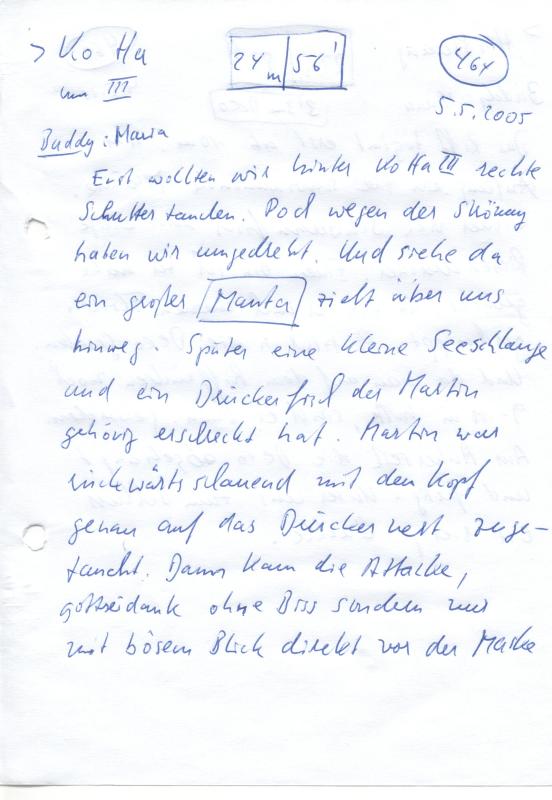 > Ko Ha 24m 56' 464
um III 5.5.2005
Buddy: Maria
Erst wollten wir hinter KoHa III rechte
Schulter tauchen. Doch wegen der Strömung
haben wir umgedreht. Und siehe da
ein großer Manta zieht über uns
hinweg. Später eine kleine Seeschlange
und ein Drückerfisch der Martin
gehörig erschreckt hat. Martin war
rückwärtsschauend mit dem Kopf
genau auf das Drückernest zuge-
taucht. Dann kam die Attacke,
gottseidank ohne Biss sondern nur
mit bösem Blick direkt vor der Maske